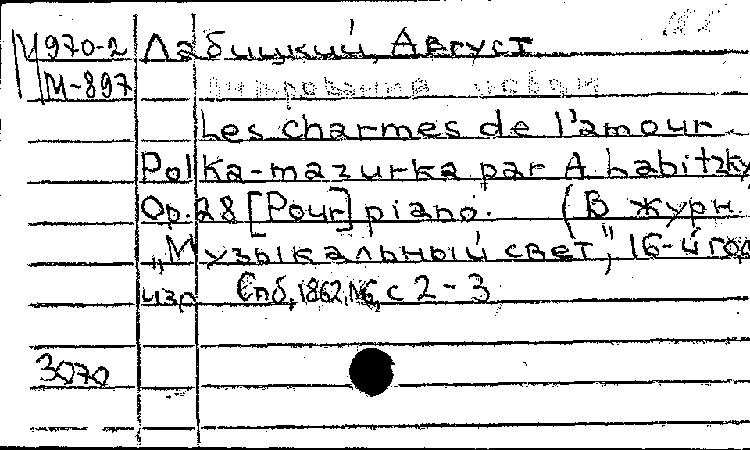 М970-2 Лабицкий, Август
М-897
Les charmes de l'amour
Polka-mazurka par A. Labitzky
Op. 28 [Pour] piano. (В журн.
„Музыкальный свет", 16-й год
изд Спб, 1862, №6, с 2-3
3070